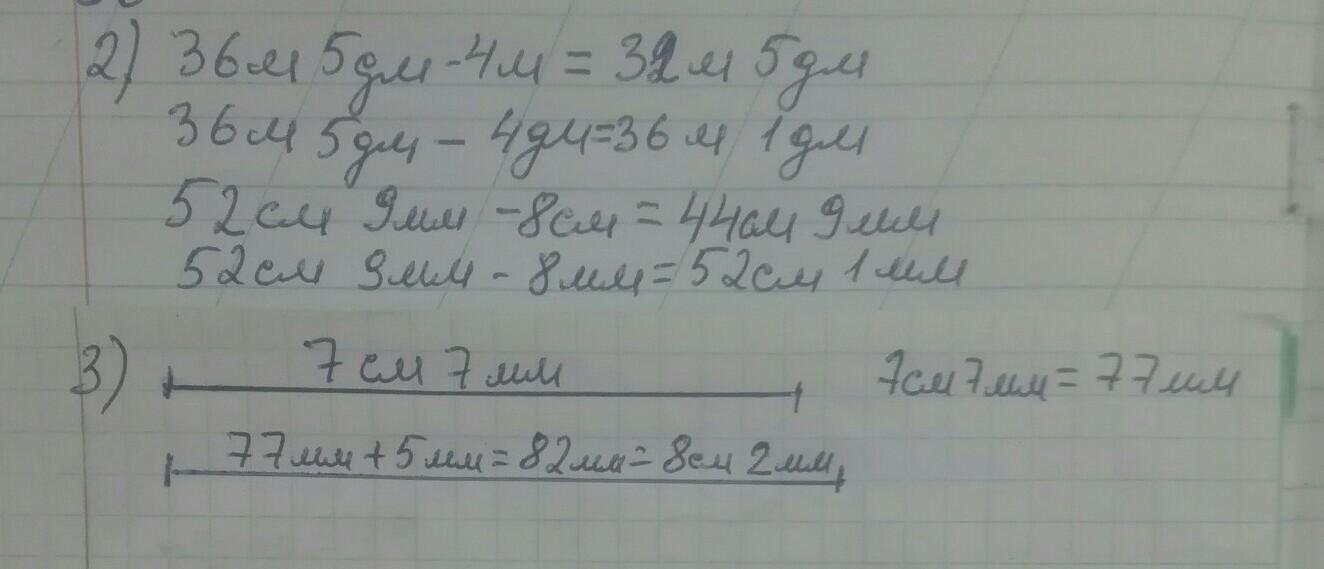 2) 36м 5дм - 4м = 32м 5дм
36м 5дм - 4дм = 36м 1дм
52см 9мм - 8см = 44см 9мм
52см 9мм - 8мм = 52см 1мм
3) 7см 7мм 7см 7мм = 77мм
77мм + 5мм = 82мм = 8см 2мм